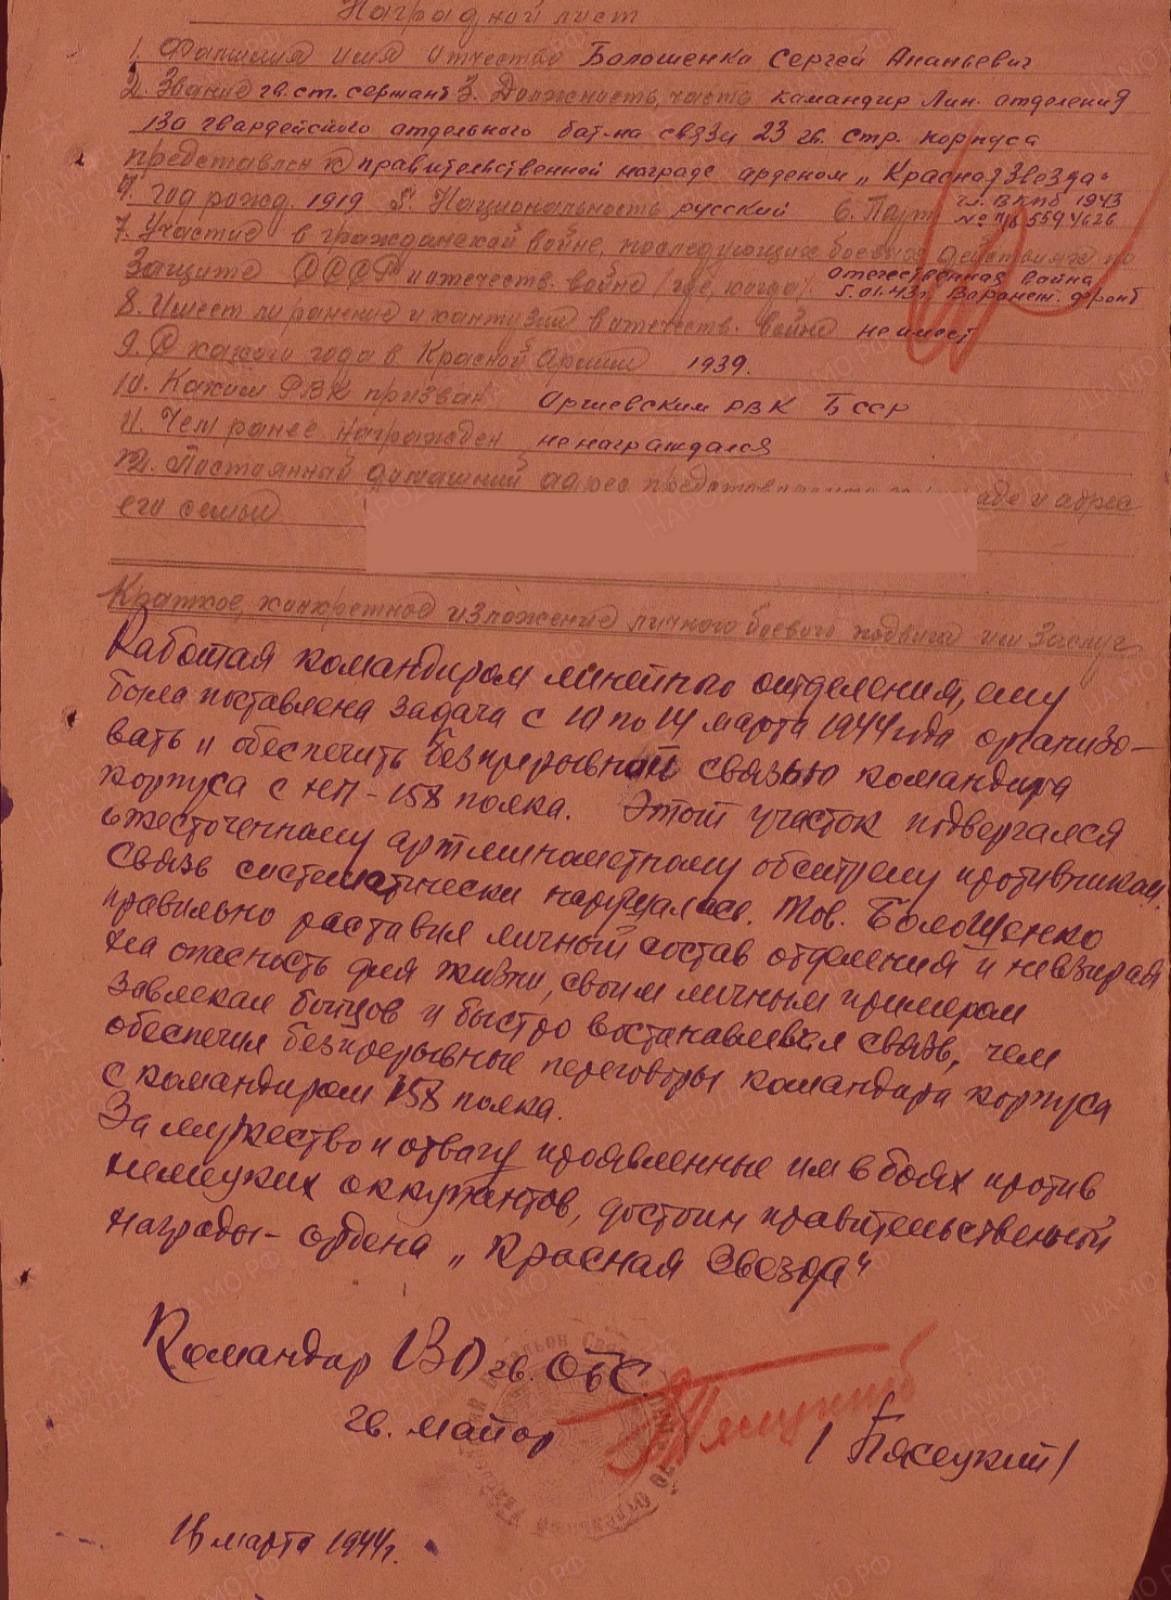 Наградной лист
1. Фамилия имя отчество Болошенко Сергей Ананьевич
2. Звание гв. ст. сержант 3. Должность, часть камандир Лин. отделения
130 гвардейского отдельного бат-на связи 23 гв. стр. корпуса
представлен к правительственной награде орденом „Красная Звезда"
4. год рожд. 1919 5. Национальность русский 6. Парт. чл. ВКПб 1943
№ 5594626
7. Участие в гражданской войне, последующих боевых действиях по
защите СССР и отечеств. войне (где, когда). отечественная война
5.01.43г. Воронеж. фронт
8. Имеет ли ранение и контузии в отечеств. войне не имеет
9. С какого года в Красной Армии 1939.
10. Каким РВК призван Оршевским РВК БССР
11. Чем ранее награжден не награждался
12. Постоянный домашний адрес и адрес
его семьи
Краткое, конкретное изложение личного боевого подвига или заслуг
Работая командиром линейного отделения, ему
была поставлена задача с 10 по 14 марта 1944 года организо-
вать и обеспечить безпрерывной связью командира
корпуса с НП-158 полка. Этот участок подвергался
ожесточенному артминометному обстрелу противником.
Связь систематически нарушалась. Тов. Болошенко
правильно раставил личный состав отделения и невзирая
на опасность для жизни, своим личным примером
завлекал бойцов и быстро востанавлевал связь, чем
обеспечил безпрерывные переговоры командира корпуса
с командиром 158 полка.
За мужество и отвагу проявленные им в боях против
немецких оккупантов, достоин правительственной
награды - ордена „Красная Звезда"
Командир 130 гв. ОБС
гв. майор Пясецкий / Пясецкий /
марта 1944 г.
ПАМЯТЬ НАРОДА
ЦА МО РФ